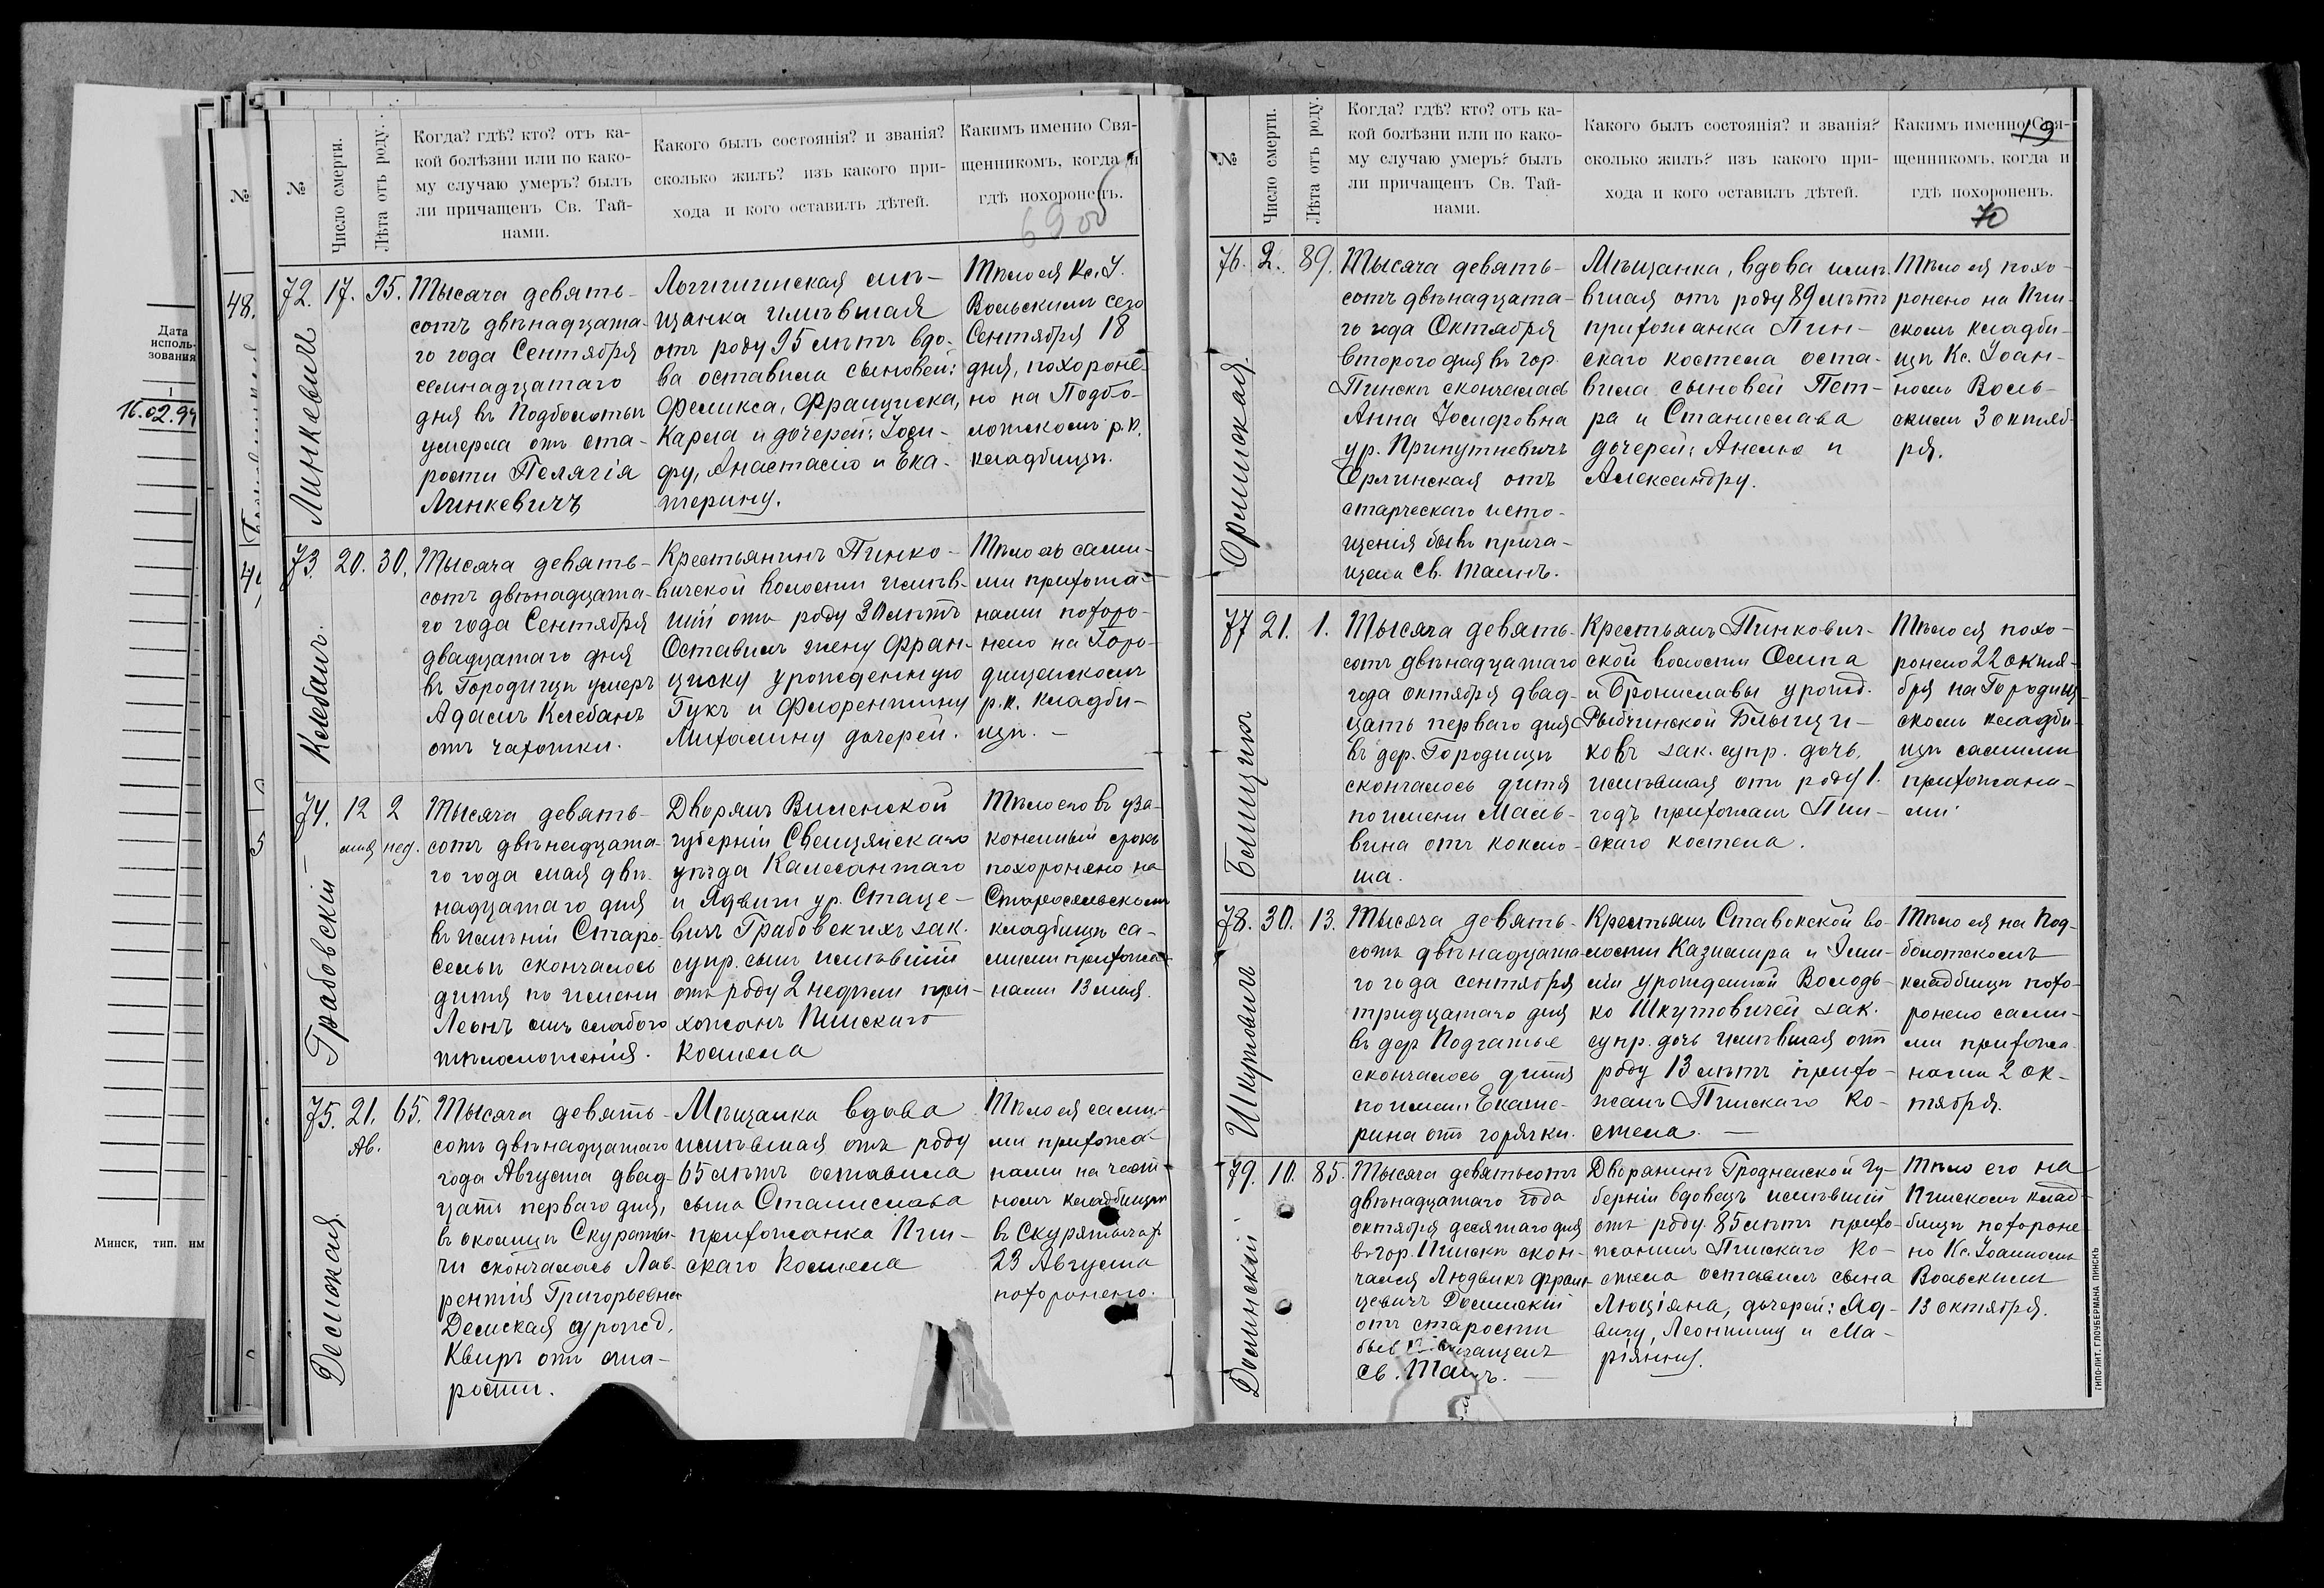 Дата
исполь-
зования
1
16.02.94
Минск, тип. им
№
48.
5
№
Число смерти.
Лѣта отъ роду.
Когда? гдѣ? кто? отъ ка-
кой болѣзни или по како-
му случаю умеръ? былъ
ли причащенъ Св. Тай-
нами.
Какого былъ состоянія? и званія?
сколько жилъ? изъ какого при-
хода и кого оставилъ дѣтей.
Какимъ именно Свя-
щенникомъ, когда и
гдѣ похороненъ.
69
72.
17.
95.
Линкевичъ
Тысяча девять-
сотъ двѣнадцата-
го года Сентября
семнадцатаго
дня въ Подболотьи
умерла отъ ста-
рости Пелягія
Линкевичъ
мѣ-
щанка имѣвшая
отъ роду 95 лѣтъ вдо-
ва оставила сыновей:
Феликса, Франциска,
Карла и дочерей: Iози-
фу, Анастасію и Ека-
терину.
Тѣло ея Кс. I.
Вольскимъ сего
Сентября 18
дня, похороне-
но на Подбо-
лотскомъ р.к.
кладбищѣ.
73.
20.
30.
Клебанъ.
Тысяча девять-
сотъ двѣнадцата-
го года Сентября
двадцатаго дня
въ Городищѣ умеръ
Адамъ Клебанъ
отъ чахотки.
Крестьянинъ Пинко-
вичской волости имѣв-
шій отъ роду 30 лѣтъ
Оставилъ жену Фран-
циску урожденную
Гукъ и Флорентину
Михалину дочерей.
Тѣло его сами-
ми прихожа-
нами похоро-
нено на Горо-
дищенскомъ
р.к. кладби-
щѣ. —
74.
12
мая
2
нед.
Грабовскій —
Тысяча девять-
сотъ двѣнадцата-
го года мая двѣ-
надцатаго дня
въ имѣніи Старо-
сельи скончалось
дитя по имени
Леонъ отъ слабого
тѣлосложенія.
Дворянъ Виленской
губерніи Свенцянскаго
уѣзда Калесантаго
и Ядвиги ур. Стаце-
вичъ Грабовскихъ зак.
супр. сынъ имѣвшій
отъ роду 2 недѣли при-
хожанъ Пинскаго
костела
Тѣло его въ уза-
коненный срокъ
похоронено на
Старосельскомъ
кладбищѣ са-
мими прихожа-
нами 13 мая.
75.
21.
Ав.
65.
Тысяча девять-
сотъ двѣнадцатаго
года Августа двад-
цать перваго дня,
въ околицѣ Скураты-
чи скончалась Лав-
рентія Григорьевна
урожд.
Квиръ отъ ста-
рости.
Мѣщанка вдова
имѣвшая отъ роду
65 лѣтъ оставила
сына Станислава
прихожанка Пин-
скаго костела
Тѣло ея сами-
ми прихожа-
нами на част-
номъ кладбищѣ
въ Скурятичахъ
23 Августа
похоронено.
№
Число смерти.
Лѣта отъ роду.
Когда? гдѣ? кто? отъ ка-
кой болѣзни или по како-
му случаю умеръ? былъ
ли причащенъ Св. Тай-
нами.
Какого былъ состоянія? и званія?
сколько жилъ? изъ какого при-
хода и кого оставилъ дѣтей.
Какимъ именно Свя-
щенникомъ, когда и
гдѣ похороненъ.
19
70
76.
2.
89.
Орлинская.
Тысяча девять-
сотъ двѣнадцата-
го года Октября
второго дня въ гор.
Пинскѣ скончалась
Анна Iосифовна
ур. Припутневичъ
Орлинская отъ
старческаго исто-
щенія бывъ прича-
щена Св. Таинъ.
Мѣщанка, вдова имѣ-
вшая отъ роду 89 лѣтъ
прихожанка Пин-
скаго костела оста-
вила сыновей Пет-
ра и Станислава
дочерей: Анелю и
Александру.
Тѣло ея похо-
ронено на Пин-
скомъ кладби-
щѣ Кс. Iоан-
номъ Воль-
скимъ 3 октяб-
ря.
77
21.
1.
Блищикъ
Тысяча девять-
сотъ двѣнадцатаго
года октября двад-
цать перваго дня
въ дер. Городищѣ
скончалось дитя
по имени Маль-
вина отъ коклю-
ша.
Крестьянъ Пинкович-
ской волости Осипа
и Брониславы урожд.
Рыбчинской Блищи-
ковъ зак. супр. дочь,
имѣвшая отъ роду 1.
годъ прихожанъ Пин-
скаго костела.
Тѣло ея похо-
ронено 22 октя-
бря на Городищ-
скомъ кладби-
щѣ самими
прихожана-
ми
78.
30.
13.
Шкутовичъ
Тысяча девять-
сотъ двѣнадцата-
го года сентября
тридцатаго дня
въ дер Подгатье
скончалось дитя
по имени Екате-
рина отъ горячки.
Крестьянъ Ставокской во-
лости Казимира и Эми-
ліи урожденной Володь-
ко Шкутовичей зак.
супр. дочь имѣвшая отъ
роду 13 лѣтъ прихо-
жанъ Пинскаго ко-
стела. —
Тѣло ея на Под-
болотскомъ
кладбищѣ похо-
ронено сами-
ми прихожа-
нами 2 ок-
тября.
79.
10.
85.
Долинскій
Тысяча девятьсотъ
двѣнадцатаго года
октября десятаго дня
въ гор. Пинскѣ скон-
чался Людвикъ Фран-
цевичъ Долинскій
отъ старости
бывъ
Св. Таинъ. —
Дворянинъ Гродненской гу-
берніи вдовецъ имѣвшій
отъ роду 85 лѣтъ прихо-
жанинъ Пинскаго ко-
стела оставилъ сына
Люціяна, дочерей: Яд-
вигу, Леонтину и Ма-
ріянну.
Тѣло его на
Пинскомъ клад-
бищѣ похороне-
но Кс. Iоанномъ
Вольскимъ
13 октября.
ТИПО-ЛИТ. ГЛОУБЕРМАНА ПИНСКЪ